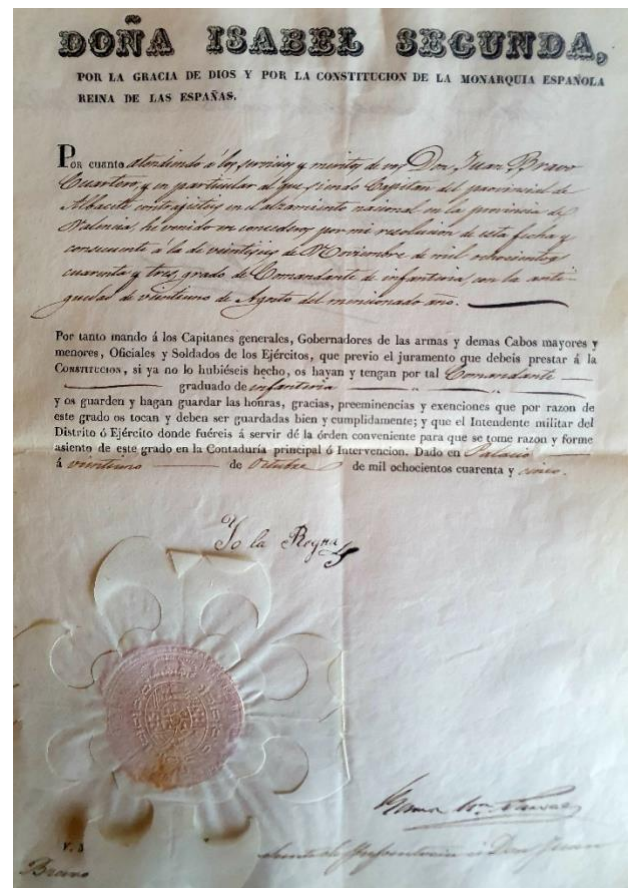 DOÑA ISABEL SEGUNDA,
POR LA GRACIA DE DIOS Y POR LA CONSTITUCION DE LA MONARQUIA ESPAÑOLA
REINA DE LAS ESPAÑAS.
Por cuanto atendiendo á los servicios y meritos de vos Don Juan Bravo
Cuartero, y en particular al que siendo Capitan del provincial de
Albacete contragisteis en el alzamiento nacional en la provincia de
Valencia, hé venido en concederos por mi resolucion de esta fecha y
consecuente á la de veintiseis de Noviembre de mil ochocientos
cuarenta y tres, grado de Comandante de infanteria con la anti-
guedad de veintiuno de Agosto del mencionado año.
Por tanto mando á los Capitanes generales, Gobernadores de las armas y demas Cabos mayores y
menores, Oficiales y Soldados de los Ejércitos, que previo el juramento que debeis prestar á la
Constitucion, si ya no lo hubiéseis hecho, os hayan y tengan por tal Comandante
graduado de infanteria
y os guarden y hagan guardar las honras, gracias, preeminencias y exenciones que por razon de
este grado os tocan y deben ser guardadas bien y cumplidamente; y que el Intendente militar del
Distrito ó Ejército donde fuéreis á servir dé la órden conveniente para que se tome razon y forme
asiento de este grado en la Contaduría principal ó Intervencion. Dado en Palacio
á veintiuno de Octubre de mil ochocientos cuarenta y cinco.
Yo la Reyna
Ramon Mª Narvaez
V. 3
Infanteria á Don Juan
Bravo